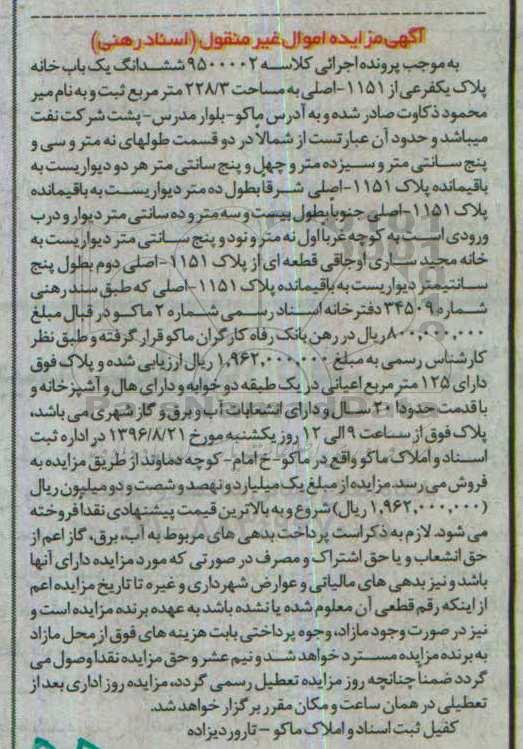 آگهی مزایده اموال غیر منقول (اسناد رهنی)
به موجب پرونده اجرائی کلاسه ۹۵۰۰۰۰۲ ششدانگ یک باب خانه
پلاک یکفرعی از ۱۱۵۱-اصلی به مساحت ۲۲۸/۳ متر مربع ثبت و به نام میر
محمود ذکاوت صادر شده و به آدرس ماکو-بلوار مدرس- پشت شرکت نفت
میباشد و حدود آن عبارتست از شمالاً در دو قسمت طولهای نه متر و سی و
پنج سانتی متر و سیزده متر و چهل و پنج سانتی متر هر دو دیواریست به
باقیمانده پلاک ۱۱۵۱-اصلی شرقاً بطول ده متر دیواریست به باقیمانده
پلاک ۱۱۵۱-اصلی جنوباً بطول بیست و سه متر و ده سانتی متر دیوار و درب
ورودی است به کوچه غرباً اول نه متر و نود و پنج سانتی متر دیواریست به
خانه مجید ساری اوجاقی قطعه ای از پلاک ۱۱۵۱-اصلی دوم بطول پنج
سانتیمتر دیواریست به باقیمانده پلاک ۱۱۵۱-اصلی که طبق سند رهنی
شماره ۳۴۵۰۹ دفترخانه اسناد رسمی شماره ۲ ماکو در قبال مبلغ
۸۰۰,۰۰۰,۰۰۰ریال در رهن بانک رفاه کارگران ماکو قرار گرفته و طبق نظر
کارشناس رسمی به مبلغ ۱,۹۶۲,۰۰۰,۰۰۰ ریال ارزیابی شده و پلاک فوق
دارای ۱۲۵ متر مربع اعیانی در یک طبقه دو خوابه و دارای هال و آشپزخانه و
با قدمت حدوداً ۲۰ سال و دارای انشعابات آب و برق و گاز شهری می باشد،
پلاک فوق از ساعت ۹ الی ۱۲ روز یکشنبه مورخ ۱۳۹۶/۸/۲۱ در اداره ثبت
اسناد و املاک ماکو واقع در ماکو- خ امام- کوچه دماوند از طریق مزایده به
فروش می رسد. مزایده از مبلغ یک میلیارد و نهصد و شصت و دو میلیون ریال
(۱,۹۶۲,۰۰۰,۰۰۰ ریال) شروع و به بالاترین قیمت پیشنهادی نقداً فروخته
می شود. لازم به ذکر است پرداخت بدهی های مربوط به آب، برق، گاز اعم از
حق انشعاب و یا حق اشتراک و مصرف در صورتی که مورد مزایده دارای آنها
باشد و نیز بدهی های مالیاتی و عوارض شهرداری و غیره تا تاریخ مزایده اعم
از اینکه رقم قطعی آن معلوم شده یا نشده باشد به عهده برنده مزایده است و
نیز در صورت وجود مازاد، وجوه پرداختی بابت هزینه های فوق از محل مازاد
به برنده مزایده مسترد خواهد شد و نیم عشر و حق مزایده نقداً وصول می
گردد ضمناً چنانچه روز مزایده تعطیل رسمی گردد، مزایده روز اداری بعد از
تعطیلی در همان ساعت و مکان مقرر برگزار خواهد شد.
کفیل ثبت اسناد و املاک ماکو – تاروردیزاده